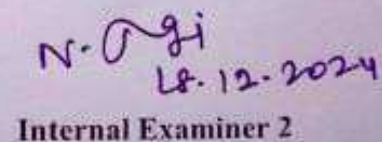 18.12.2024
Internal Examiner 2